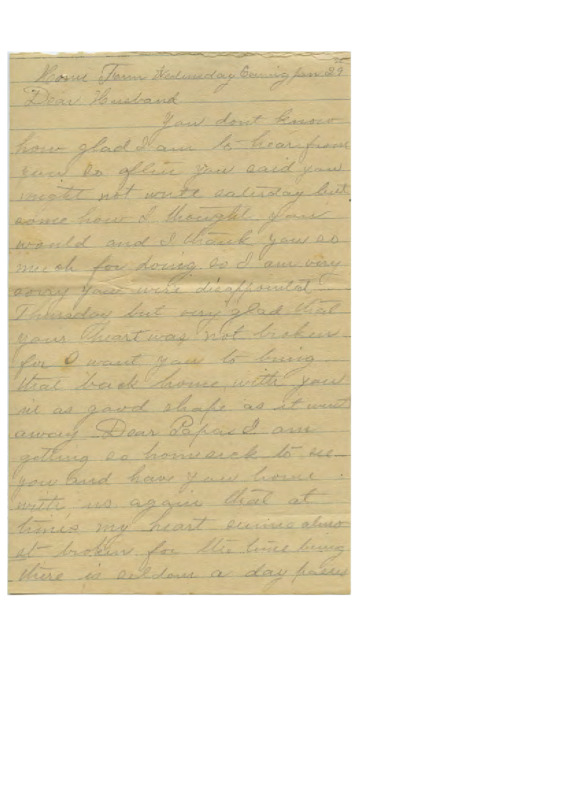 Home Farm Wednesday Evening Jan 29
Dear Husband
You dont know
how glad I am to hear from
you so often you said you
might not write saturday but
some how I thought you
would and I thank you so
much for doing so I am very
sorry you were disappointed
Thursday but very glad that
your heart was not broken
for I want you to bring
that back home with you
in as good shape as it went
away Dear Papa I am
getting so homesick to see
you and have you home
with us again that at
times my heart seems almo
st broken for the time being
there is seldom a day passes